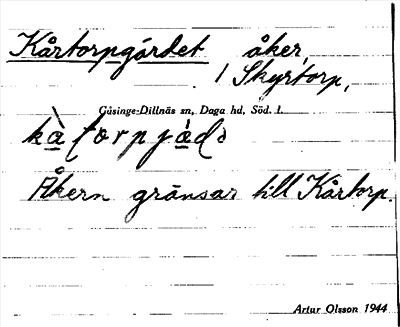 Kårtorpgärdet åker,
/ Skyrtorp,
Gåsinge-Dillnäs sn, Daga hd, Söd. l.
Åkern gränsar till Kårtorp.
Artur Olsson 1944